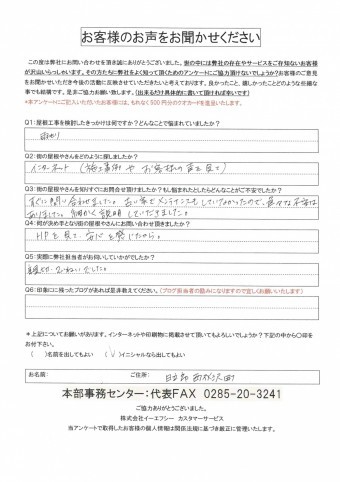 お客様のお声をお聞かせください
この度は弊社にお問い合わせを頂き誠にありがとうございました。街の中には弊社の存在やサービスをご存知ないお客様
が沢山いらっしゃいます。その方たちに弊社をよく知って頂くためのアンケートにご協力頂けないでしょうか？お客様のご意見
をお聞かせいただき今後の活動に反映させていただきたいと考えております。良かったこと、嬉しかったことどのような些細な
事でも結構です。是非ご協力お願い致します。（出来るだけ具体的に書いて頂ければ幸いです）
*本アンケートにご記入いただいたお客様には、もれなく500円分のクオカードを進呈いたします。
Q1：屋根工事を検討したきっかけは何ですか？どんなことで悩まれていましたか？
雨もり
Q2：街の屋根やさんをどのように探しましたか？
インターネット（施工事例や お客様の声を見て）
Q3：街の屋根やさんを知りすぐにお問合せ頂けましたか？もし悩まれたとしたらどんなことがご不安でしたか？
すぐに問い合わせました。古い家でメンテナンスもしていなかったので、色々な不安は
ありました。細かく説明していただきました。
Q4：何が決め手となり街の屋根やさんにお問い合わせ頂きましたか？
HPを見て、安心を感じたから。
Q5：実際に弊社担当者がお伺いしていかがでしたか？
親切、ていねいでした。
Q6：印象にに残ったブログがあれば是非教えてください。（ブログ担当者の励みになりますので宜しくお願いいたします）
＊上記についてお願いがあります。インターネットや印刷物に掲載させて頂いてもよろしいでしょうか？下記の中から〇印を
お付け下さい。
（ ）名前を出してもよい （✓）イニシャルなら出してもよい
お名前： ご住所： 日立市 町
本部事務センター：代表FAX 0285-20-3241
ご協力ありがとうございました。
株式会社イーエフシー カスタマーサービス
当アンケートで取得したお客様の個人情報は関係法規に基づき厳正に管理いたします。